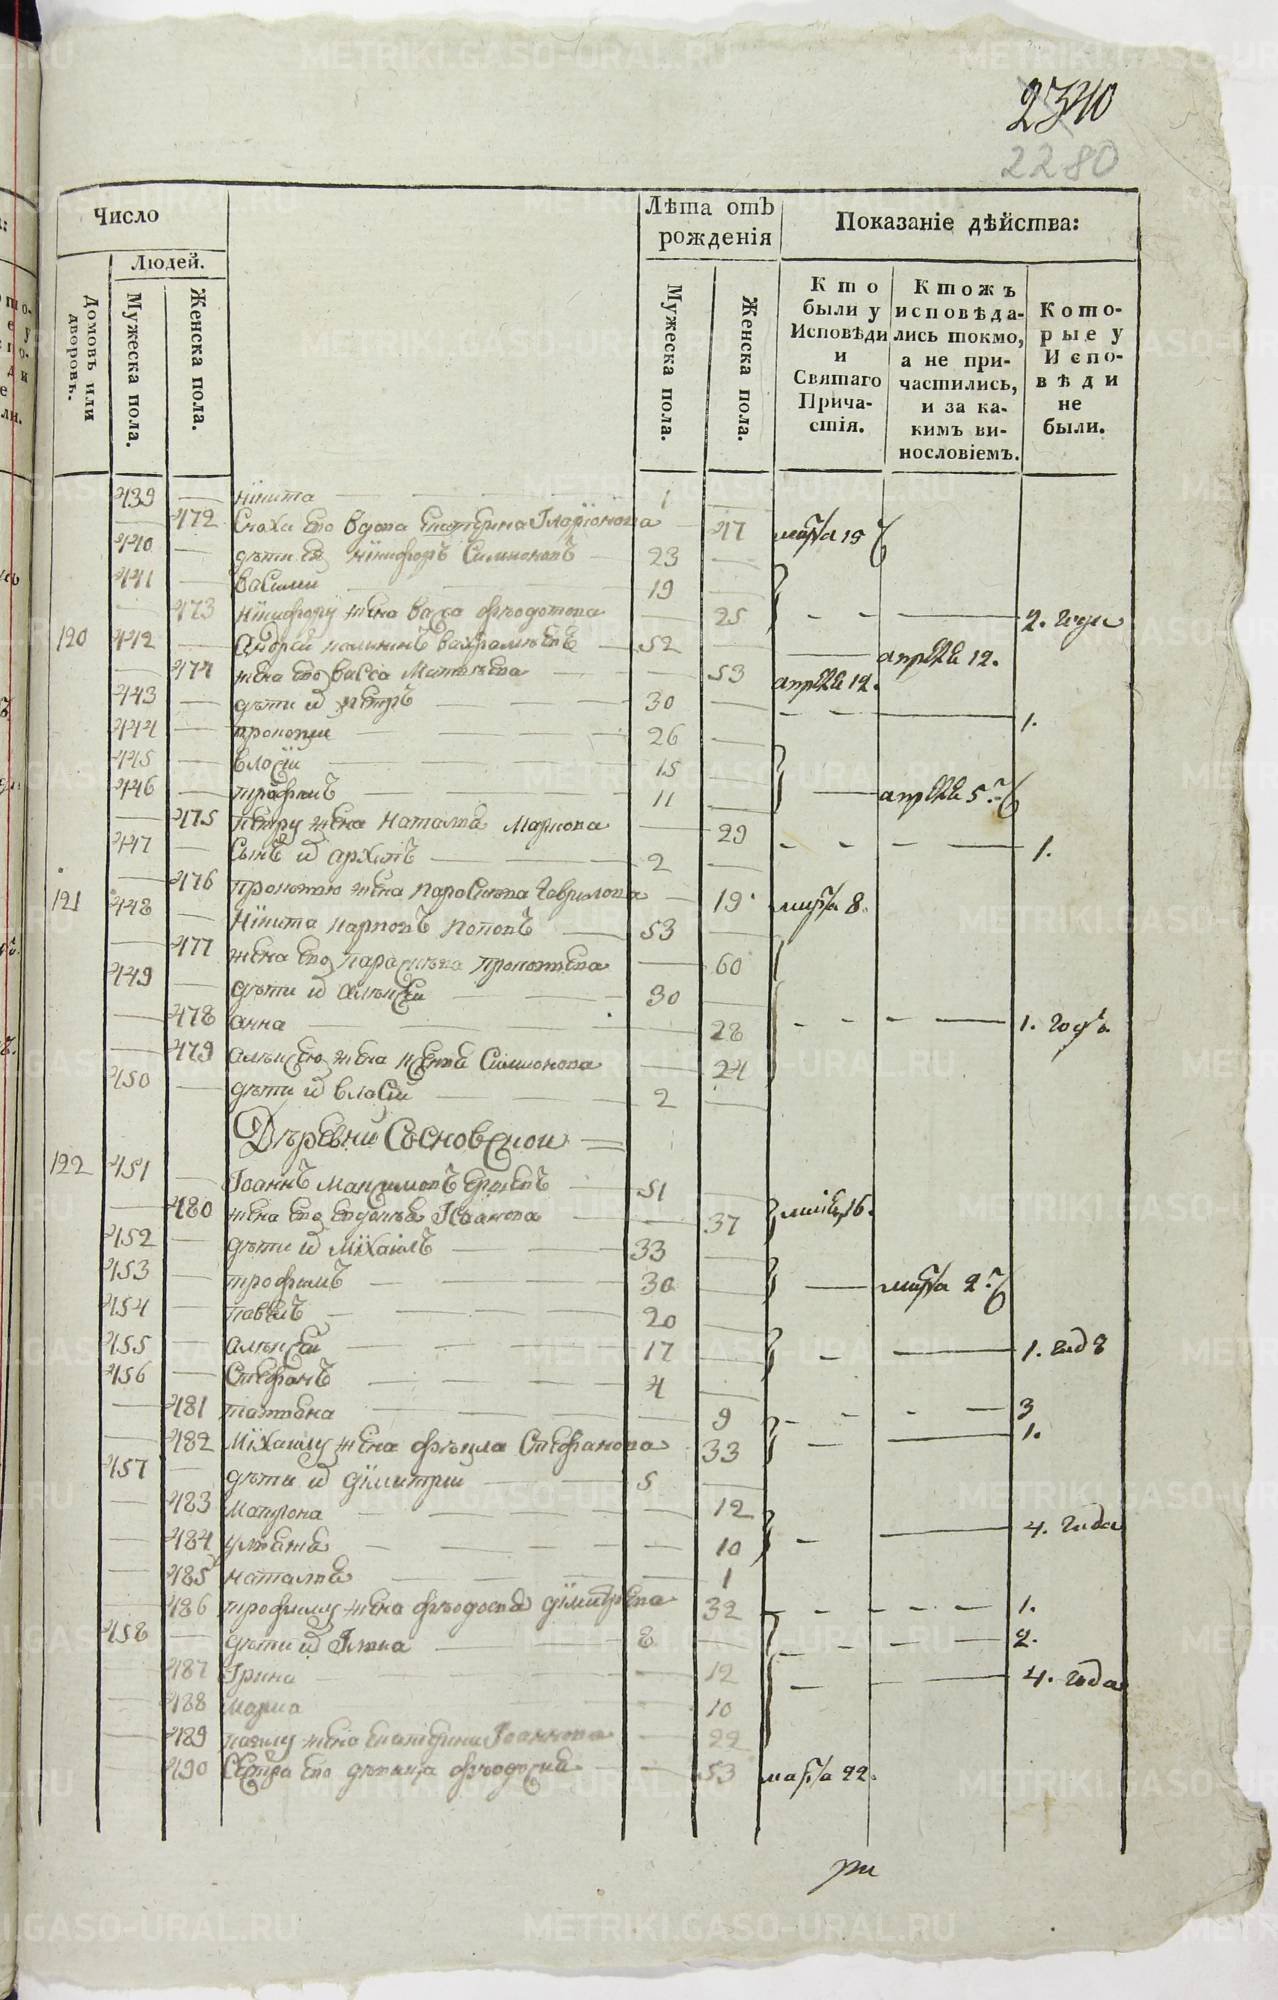 2340
2280
Число
Людей.
Домовъ или дворовъ.
Мужеска пола.
Женска пола.
Лѣта отъ рожденія
Мужеска пола.
Женска пола.
Показаніе дѣйства:
Кто были у Исповѣди и Святаго Причастія.
Ктожъ исповѣдались токмо, а не причастились, и за какимъ винословіемъ.
Которые у Исповѣди не были.
439 — Нїкита — 1
472 Сноха его вдова Екатерина Іларїонова — 47 марта 15
440 — дѣти ея Нїкифоръ Симионовъ — 23
441 — Василий — 19
473 Нїкифору жена Васса Фѣодотова — 25 — 2. годы
120 442 — Андрей Вахрамѣевъ — 52 — апреля 12.
474 жена его Васса Матвѣева — 53 апреля 12.
443 — дѣти их Петръ — 30 — 1.
444 — Прокопии — 26
445 — Власїи — 15
446 — Трофимъ — 11 — апреля 5
475 Петру жена Наталья Маркова — 29
447 — Сынъ их Архипъ — 2 — 1.
476 Прокопию жена Параскѣва Гаврилова — 19 марта 8.
121 448 — Нїкита Карповъ Поповъ — 53
477 жена его Параскѣва Прокопьева — 60
449 — дѣти их Алѣксѣй — 30
478 Анна — 28 — 1. годъ
479 Алѣксѣю жена Ксенья Симионова — 24
450 — дѣти их Власїи — 2
Дѣревни Сосновской
122 451 — Іоаннъ Максимовъ — 51
480 жена его Евдокѣя Іоанова — 37 16.
452 — дѣти их Мїхаилъ — 33
453 — Трофимъ — 30 — марта 2
454 — Павелъ — 20
455 — Алѣксѣй — 17 — 1. годъ
456 — Стефанъ — 4
481 Татьяна — 9 — 3
482 Мїхаилу жена Фѣкла Стефанова — 33 — 1.
457 — дѣти их Дїмитрии — 5
483 Матрона — 12
484 Ульяна — 10 — 4. года
485 Наталья — 1
486 Трофиму жена Фѣодосья Дїмитрева — 32 — 1.
458 — дѣти их — 8 — 2.
487 Ірина — 12 — 4. года
488 Мариа — 10
489 Павлу жена Екатерина Іоаннова — 22
490 Сестра его дѣвица Фѣодосия — 53 марта 22.